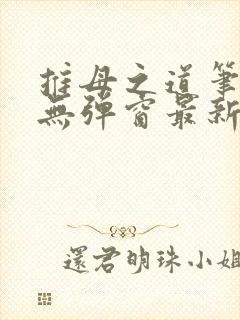 推母之道筆
無彈窗最新
還君明珠小姐